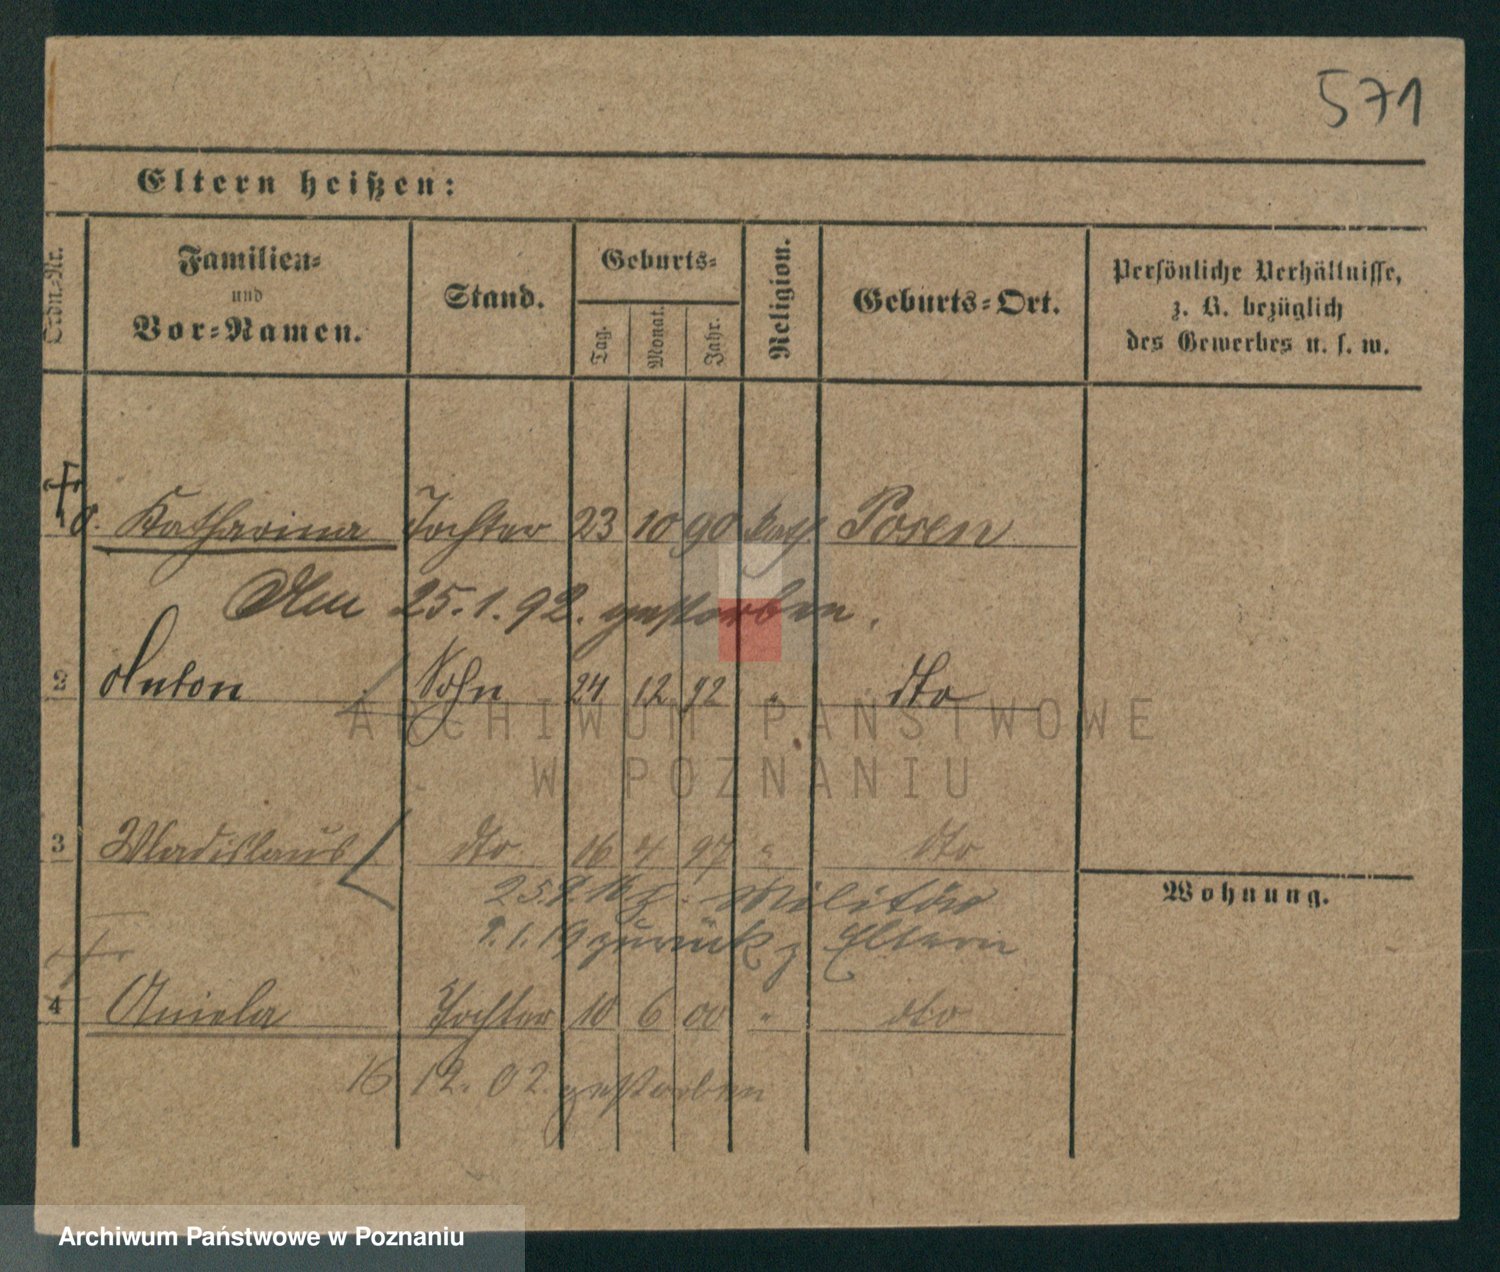 571
Eltern heißen:
Ordn.-Nr.
Familien-
und
Vor-Namen.
Stand.
Geburts-
Tag.
Monat.
Jahr.
Religion.
Geburts-Ort.
Persönliche Verhältnisse,
z. B. bezüglich
des Gewerbes u. s. w.
Katharina Tochter 23 10 90 kath Posen
Am 25.1.92. gestorben.
2 Anton Sohn 24 12 92 " dto
ARCHIWUM PAŃSTWOWE
W POZNANIU
3 Wladislaus dto 16 4 97 " dto
z. Militär
Wohnung.
9.1.19 zurück z Eltern
4 Aniela Tochter 10 6 00 " dto
16 12. 02. gestorben
Archiwum Państwowe w Poznaniu